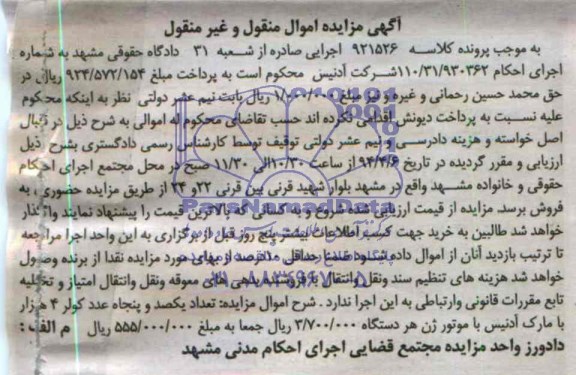 آگهی مزایده اموال منقول و غیر منقول
به موجب پرونده کلاسه ۹۲۱۵۲۶ اجرایی صادره از شعبه ۳۱ دادگاه حقوقی مشهد به شماره
اجرای احکام ۱۱۰/۳۱/۹۳۰۳۶۲شرکت آدنیس محکوم است به پرداخت مبلغ ۹۲۴/۵۷۲/۱۵۴ ریال در
حق محمد حسین رحمانی و غیره و نیز مبلغ ریال بابت نیم عشر دولتی نظر به اینکه محکوم
علیه نسبت به پرداخت دیونش اقدامی نکرده اند حسب تقاضای محکوم له اموالی به شرح ذیل در قبال
اصل خواسته و هزینه دادرسی و نیم عشر دولتی توقیف توسط کارشناس رسمی دادگستری بشرح ذیل
ارزیابی و مقرر گردیده در تاریخ ۹۴/۴/۶ از ساعت ۱۰/۳۰الی ۱۱/۳۰ صبح در محل مجتمع اجرای احکام
حقوقی و خانواده مشهد واقع در مشهد بلوار شهید قرنی بین قرنی ۲۲و ۲۴ از طریق مزایده حضوری به
فروش برسد. مزایده از قیمت ارزیابی شده شروع و به کسانی که بالاترین قیمت را پیشنهاد نمایند واگذار
خواهد شد طالبین به خرید جهت کسب اطلاعات بیشتر پنج روز قبل از برگزاری به این واحد اجرا مراجعه
تا ترتیب بازدید آنان از اموال داده شود ضمنا حداقل ۱۰درصد از بهای مورد مزایده نقدا از برنده وصول
خواهد شد هزینه های تنظیم سند ونقل وانتقال با فروشنده بدهی های معوقه ونقل وانتقال امتیاز و تخلیه
تابع مقررات قانونی وارتباطی به این اجرا ندارد . شرح اموال مزایده: تعداد یکصد و پنجاه عدد کولر ۴ هزار
با مارک آدنیس با موتور ژن هر دستگاه ۳/۷۰۰/۰۰۰ ریال جمعا به مبلغ ۵۵۵/۰۰۰/۰۰۰ ریال م الف:
دادورز واحد مزایده مجتمع قضایی اجرای احکام مدنی مشهد
ParsNamadData